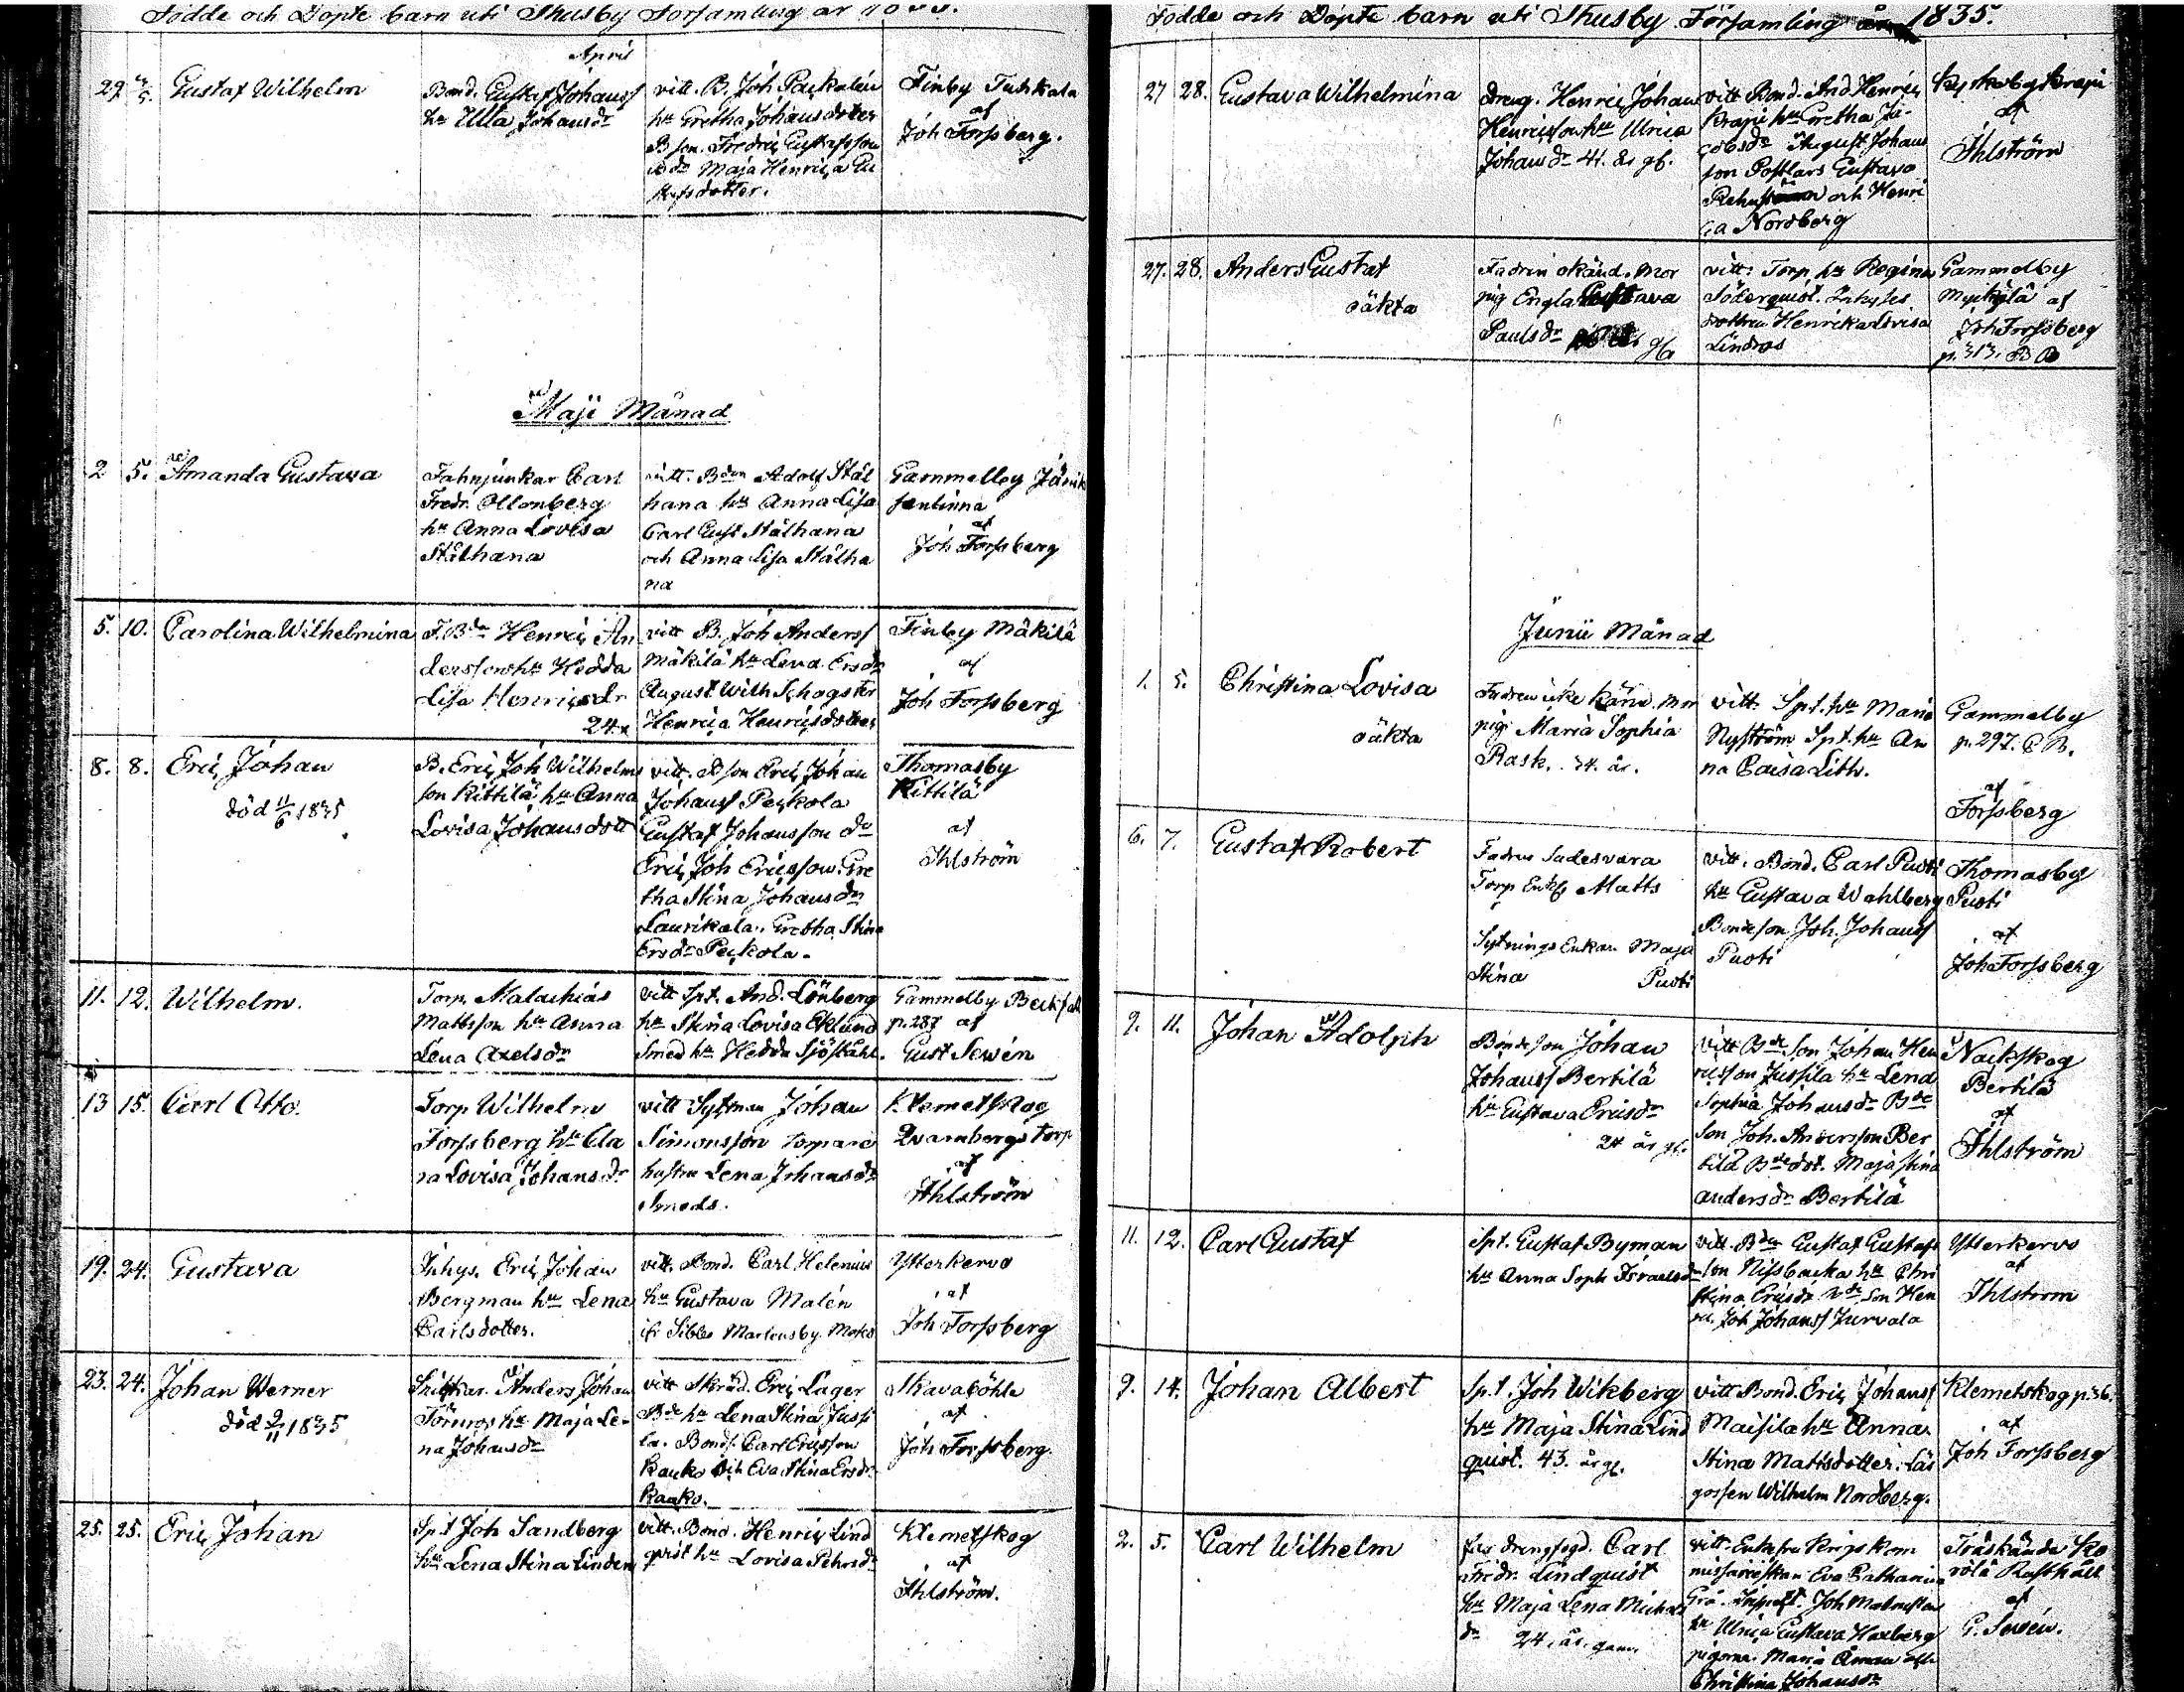 Födde och Döpte barn uti Thusby Församling år 1835.
April
29. Gustaf Wilhelm
Bond. Gustaf Johanss
hu Ulla Johansdr
vitt. B. Joh
hu Gretha Johansdotter
B son. Fredric Gustafsson
Maja Henrica Gu
stafsdotter.
Finby
af
Joh Forssberg.
Maji Månad
2 5. Amanda Gustava
Fahnjunkar Carl
Fredr. Ollonberg
hu Anna Lovisa
Stålhana
vitt. Adolf Stål
hana hu Anna Lisa
Carl Gust Stålhana
och Anna Lisa Stålha
na
Gammelby
af
Joh Forssberg
5. 10. Carolina Wilhelmina
Henric An
dersson hu Hedda
Lisa Henricsdr
24.
vitt B. Joh Anderss
Mäkilä hu Lena Ersdr
August Wilh
Henrica Henricsdotter
Finby Mäkilä
af
Joh Forssberg
8. 8. Eric Johan
död 11/6 1835
B. Eric Joh Wilhelms
son Kittilä, hu Anna
Lovisa Johansdott
vitt. B son Eric Johan
Johanss Peckola
Gustaf Johansson do
Eric Joh Ericsson. Gre
tha Stina Johansdr
Laurikala. Gretha Stina
Ersdr Peckola.
Thomasby
Kittilä
af
Ihlström
11. 12. Wilhelm.
Torp. Malachias
Mattsson hu Anna
Lena Axelsdr
vitt Spt. And. Lönberg
hu Stina Lovisa Eklund
Smed hu Hedda Sjöståhl.
Gammelby
p. 287 af
Gust Sewén
13 15. Carl Otto.
Torp Wilhelm
Forssberg hu Ula
na Lovisa Johansdr
vitt Sytman Johan
Simonsson torpare
hustru Lena Johansdr
Smeds.
Klemetskog
Qvarnbergs torp
af
Ihlström
19. 24. Gustava
Inhys. Eric Johan
Bergman hu Lena
Carlsdotter.
vitt. Bond. Carl Helenius
hu Gustava Malén
Ytterkervo
af
Joh Forssberg
23. 24. Johan Werner
död 2/11 1835
Anders Johan
Törnros hu Maja Le-
na Johansdr
vitt Skräd. Eric Lager
Bde hu Lena Stina Jussi
la. Bonds. Carl Ericsson
Rauko och Eva Stina Ersdr
Rauko.
Skavaböhle
af
Joh Forssberg.
25. 25. Eric Johan
Spt Joh Sandberg
hu Lena Stina Linden
vitt. Bond. Henric Lind
qvist hu Lovisa Pehrsdr
Klemetskog
af
Ihlström.
Födde och Döpte barn uti Thusby Församling 1835.
27 28. Gustava Wilhelmina
Dreng. Henric Johan
Henricsson hu Ulrica
Johansdr 41. år gl.
vitt Bond. And Henrics
Krapi hu Gretha Ja-
cobsdr August Johans
son Gustava
och Henri
ca Nordberg
Kyrkoby Krapi
af
Ihlström
27. 28. Anders Gustaf
oäkta
Fadren okänd. Mor
pig Engla Gustava
Paulsdr
vitt. Torp. hu Regina
Söderquist. Inhyses
dottren Henrika Lovisa
Lindros
Gammelby
af
Joh Forssberg
p. 313.
Junii Månad
1. 5. Christina Lovisa
oäkta
Fadren icke känd. Mor
pig. Maria Sophia
Rask. 34. år.
vitt. Spt. hu Maria
Nyström Spt. hu An
na Caisa Lith.
Gammelby
p. 297.
af
Forssberg
6. 7. Gustaf Robert
Fadren
Torp Matts
Sytnings Enkan Maja
Stina Puoti
vitt. Bond. Carl Puoti
hu Gustava Wahlberg
Bondeson Joh. Johanss
Puoti
Thomasby
Puoti
af
Joh Forssberg
9. 11. Johan Adolph
Bondeson Johan
Johanss Bertilä
hu Gustava Ericsdr
24 år gl.
vitt Bde son Johan Hen
ricsson Jussila hu Lena
Sophia Johansdr Bde
son Joh. Andersson Ber
tilä Bde dot. Maja Stina
Andersdr Bertilä
Nackskog
Bertilä
af
Ihlström
11. 12. Carl Gustaf
Spt. Gustaf Byman
hu Anna Soph Israelsdr
vitt. Gustaf Gustafs
son Nissbacka hu Chri
stina Ericsdr Bde son Hen
ric. Joh Johanss Jurvala
Ytterkervo
af
Ihlström
9. 14. Johan Albert
Spt. Joh Wikberg
hu Maja Stina Lind
quist. 43. år gl.
vitt Bond. Eric Johanss
Maisila hu Anna
Stina Mattsdotter. Läs
gossen Wilhelm Nordberg.
Klemetskog p. 36.
af
Joh Forssberg
2. 5. Carl Wilhelm
Carl
Fredr. Lindquist
hu Maja Lena Michels
dr 24. år gam.
vitt. Enkefru Krigs kom
missarieskan Eva Catharina
Joh
hu Ulrica Gustava Haxberg
pigorna. Maria Åman och
Christina Johansdr
Träskända
af
G. Sewén.